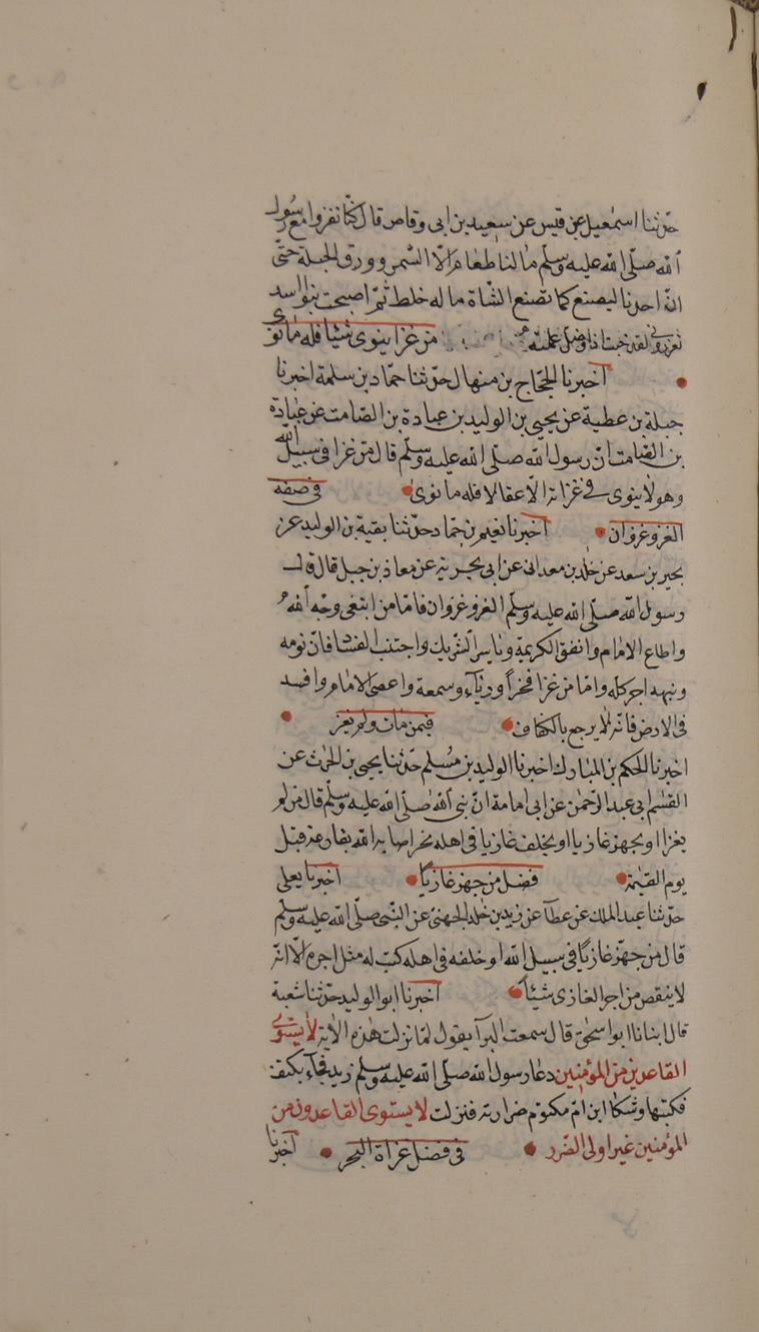 حدثنا اسمعيل عن قيس عن سعيد بن ابى وقاص قال كنا نغزوا مع رسول
الله صلى الله عليه وسلم مالنا طعام الا السمر وورق الحبلة حتى
ان احدنا ليضع كما تضع الشاة ماله خلط ثم اصبحت بنوا اسد
تعزرونى لقد خبت اذا وضل عمليه من غزا ينوى شيئا فله مانوى
اخبرنا الحجاج بن منهال حدثنا حماد بن سلمة اخبرنا
جبلة بن عطية عن يحيى بن الوليد بن عبادة بن الصامت عن عبادة
بن الصامت ان رسول الله صلى الله عليه وسلم قال من غزا فى سبيل الله
وهو لا ينوى فى غزاته الا عقالا فله مانوى فى صفه
الغزو غزوان اخبرنا نعيم بن حماد حدثنا بقية بن الوليد عن
بحير بن سعد عن خلد بن معدان عن ابى بحرية عن معاذ بن جبل قال قال
رسول الله صلى الله عليه وسلم الغزو غزوان فاما من ابتغى وجه الله
واطاع الامام وانفق الكريمة وياسر الشريك واجتنب الفساد فان نومه
ونبهه اجر كله واما من غزا فخرا وريآء وسمعة واعصى الامام وافسد
فى الارض فانه لا يرجع بالكفاف فيمن مات ولم يغز
اخبرنا الحكم بن المبارك اخبرنا الوليد بن مسلم حدثنا يحيى بن الحرث عن
القسم ابى عبد الرحمن عن ابى امامة ان نبى الله صلى الله عليه وسلم قال من لم
يغزا او يجهز غازيا او يخلف غازيا فى اهله بخير اصابه الله بقارعة قبل
يوم القيمة فضل من جهز غازيا اخبرنا يعلى
حدثنا عبد الملك عن عطآ عن زيد بن خلد الجهنى عن النبى صلى الله عليه وسلم
قال من جهز غازيا فى سبيل الله او خلفه فى اهله كتب له مثل اجره الا انه
لا ينقص من اجر الغازى شيئا اخبرنا ابو الوليد حدثنا شعبة
قال انبانا ابو اسحق قال سمعت البرآ يقول لما نزلت هذه الاية لا يستوى
القاعدين من المؤمنين دعا رسول الله صلى الله عليه وسلم زيد فجآء بكتف
فكتبها وشكا ابن ام مكتوم ضرارته فنزلت لا يستوى القاعدون من
المؤمنين غير اولى الضرر فى فضل غزاة البحر اخبرنا